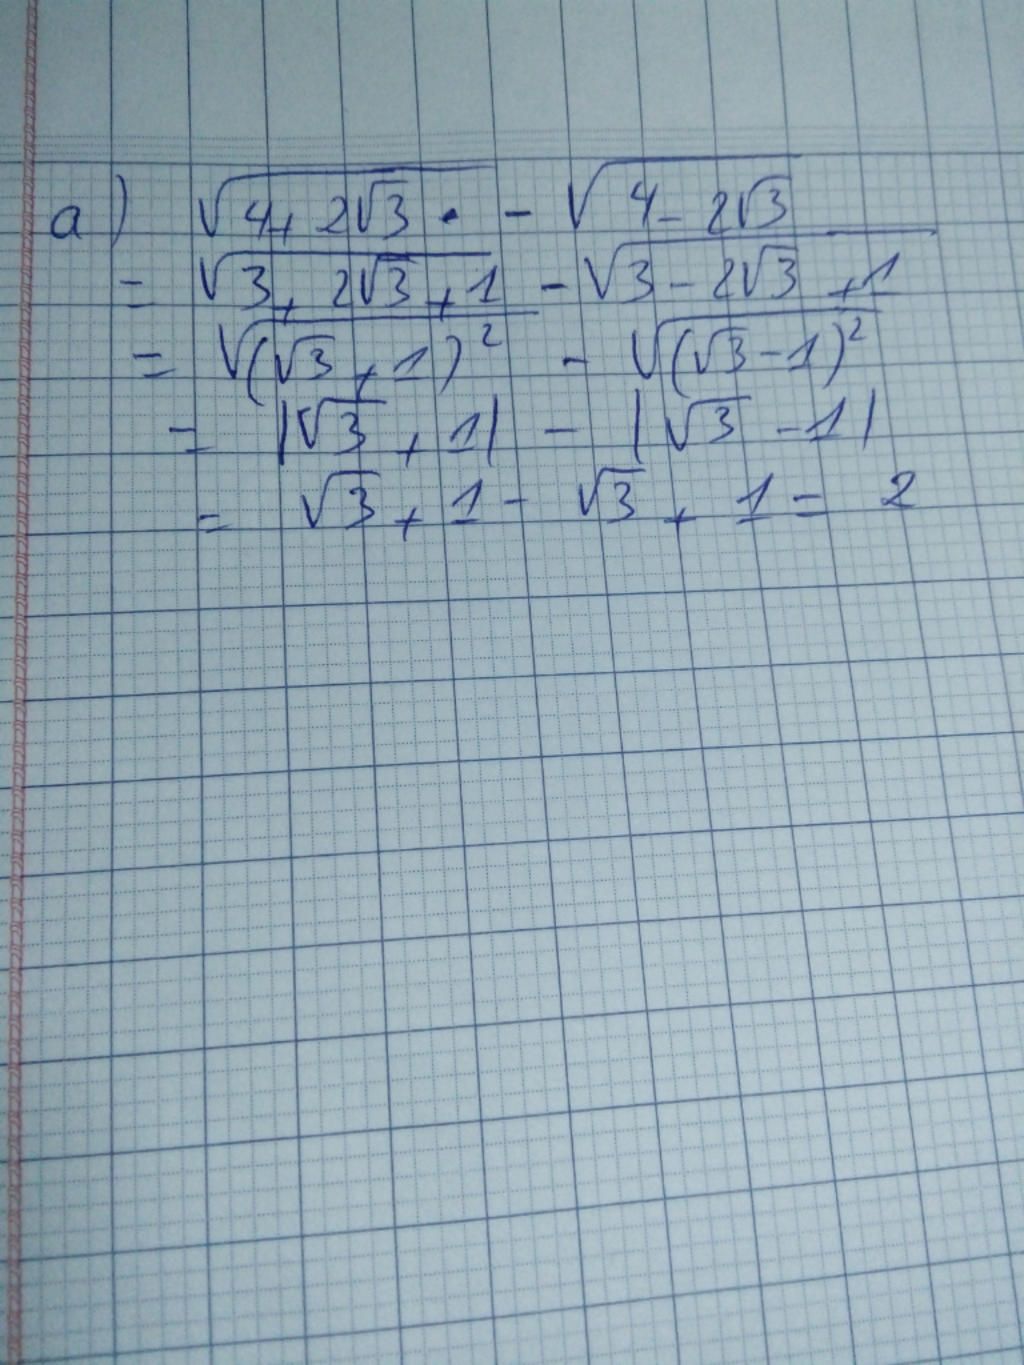 a) √(4 + 2√3) - √(4 - 2√3)
= √(3 + 2√3 + 1) - √(3 - 2√3 + 1)
= √((√3 + 1)²) - √((√3 - 1)²)
= |√3 + 1| - |√3 - 1|
= √3 + 1 - √3 + 1 = 2